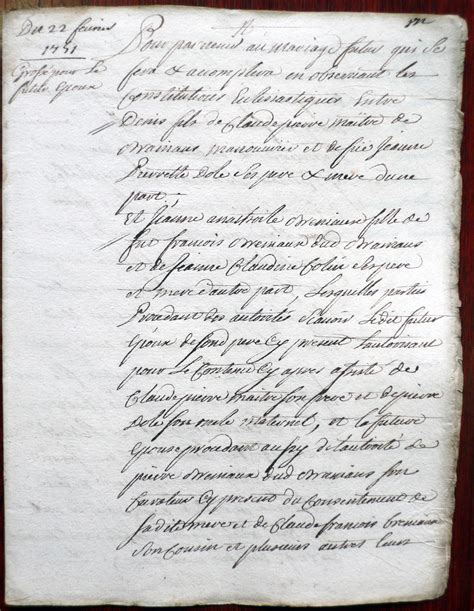 Du 22 fevrier
1751
Grosse pour le
futur Epoux
Pour parvenir au mariage futur qui se
fera & accomplira en observant les
Constitutions Eclesiastiques Entre
Denis fils de Claude pierre maitre de
manouvrier et de fue Jeanne
Pierrette Dole Ses pere & mere d'une
part
Et Jeanne anastoile Breniaux fille de
fut francois Breniaux dud
et de Jeanne Claudine Colin Ses pere
et mere d'autre part, Lesquelles parties
Procedant des autorités Scavoir Ledit futur
Epoux de Sond pere Cy present L'autorisant
pour Le Contenu Cy apres assisté de
Claude pierre maitre Son frere et de pierre
Dole Son oncle maternel, et la future
Epouse procedant aussy de l'autorité de
pierre Breniaux dud Son
Curateur Cy present du Consentement de
Sadite mere et de Claude francois Breniaux
Son Cousin et plusieurs autres Leurs